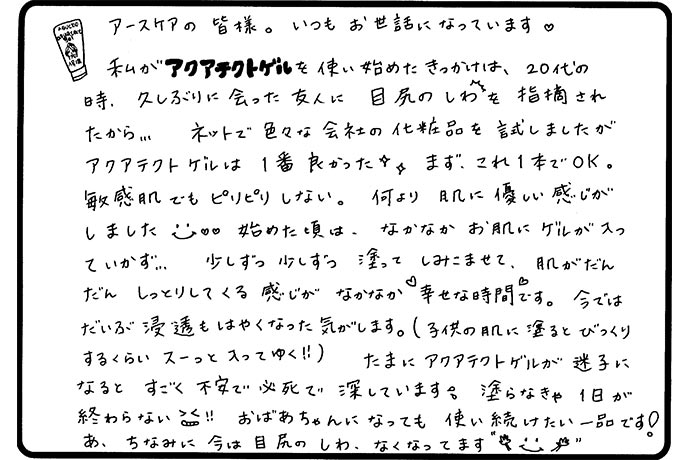 アースケアの皆様。いつもお世話になっています♡
私がアクアテクトゲルを使い始めたきっかけは、20代の
時、久しぶりに会った友人に目尻のしわを指摘され
たから… ネットで色々な会社の化粧品を試しましたが
アクアテクトゲルは1番良かった まず、これ1本でOK。
敏感肌でもピリピリしない。何より肌に優しい感じが
しました 始めた頃は、なかなかお肌にゲルが入っ
ていかず… 少しずつ少しずつ塗ってしみこませて、肌がだん
だんしっとりしてくる感じがなかなか♡幸せな時間♡です。今では
だいぶ浸透もはやくなった気がします。(子供の肌に塗るとびっくり
するくらいスーっと入ってゆく!!) たまにアクアテクトゲルが迷子に
なるとすごく不安で必死で深しています。塗らなきゃ1日が
終わらない!! おばあちゃんになっても使い続けたい一品です!
あ、ちなみに今は目尻のしわ、なくなってます